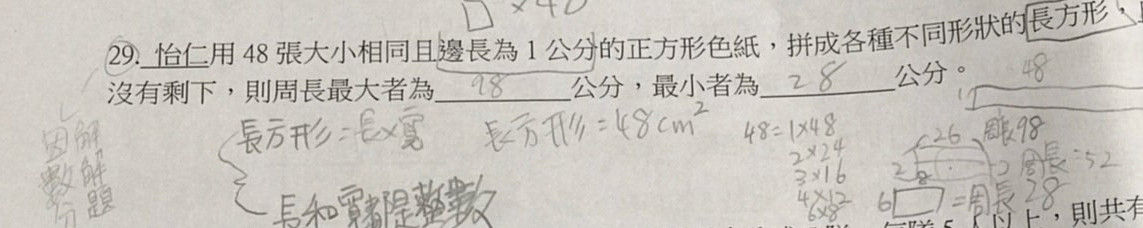 □×48
29. 怡仁用 48 張大小相同且邊長為 1 公分的正方形色紙，拼成各種不同形狀的長方形，
沒有剩下，則周長最大者為 98 公分，最小者為 28 公分。
48
1
因數分解解題
長方形=長×寬
長和寬都是整數
長方形=48cm²
48=1×48
2×24
3×16
4×12
6×8
周長98
26
2
周長=52
8
6□=周長28
5 人以上，則共有